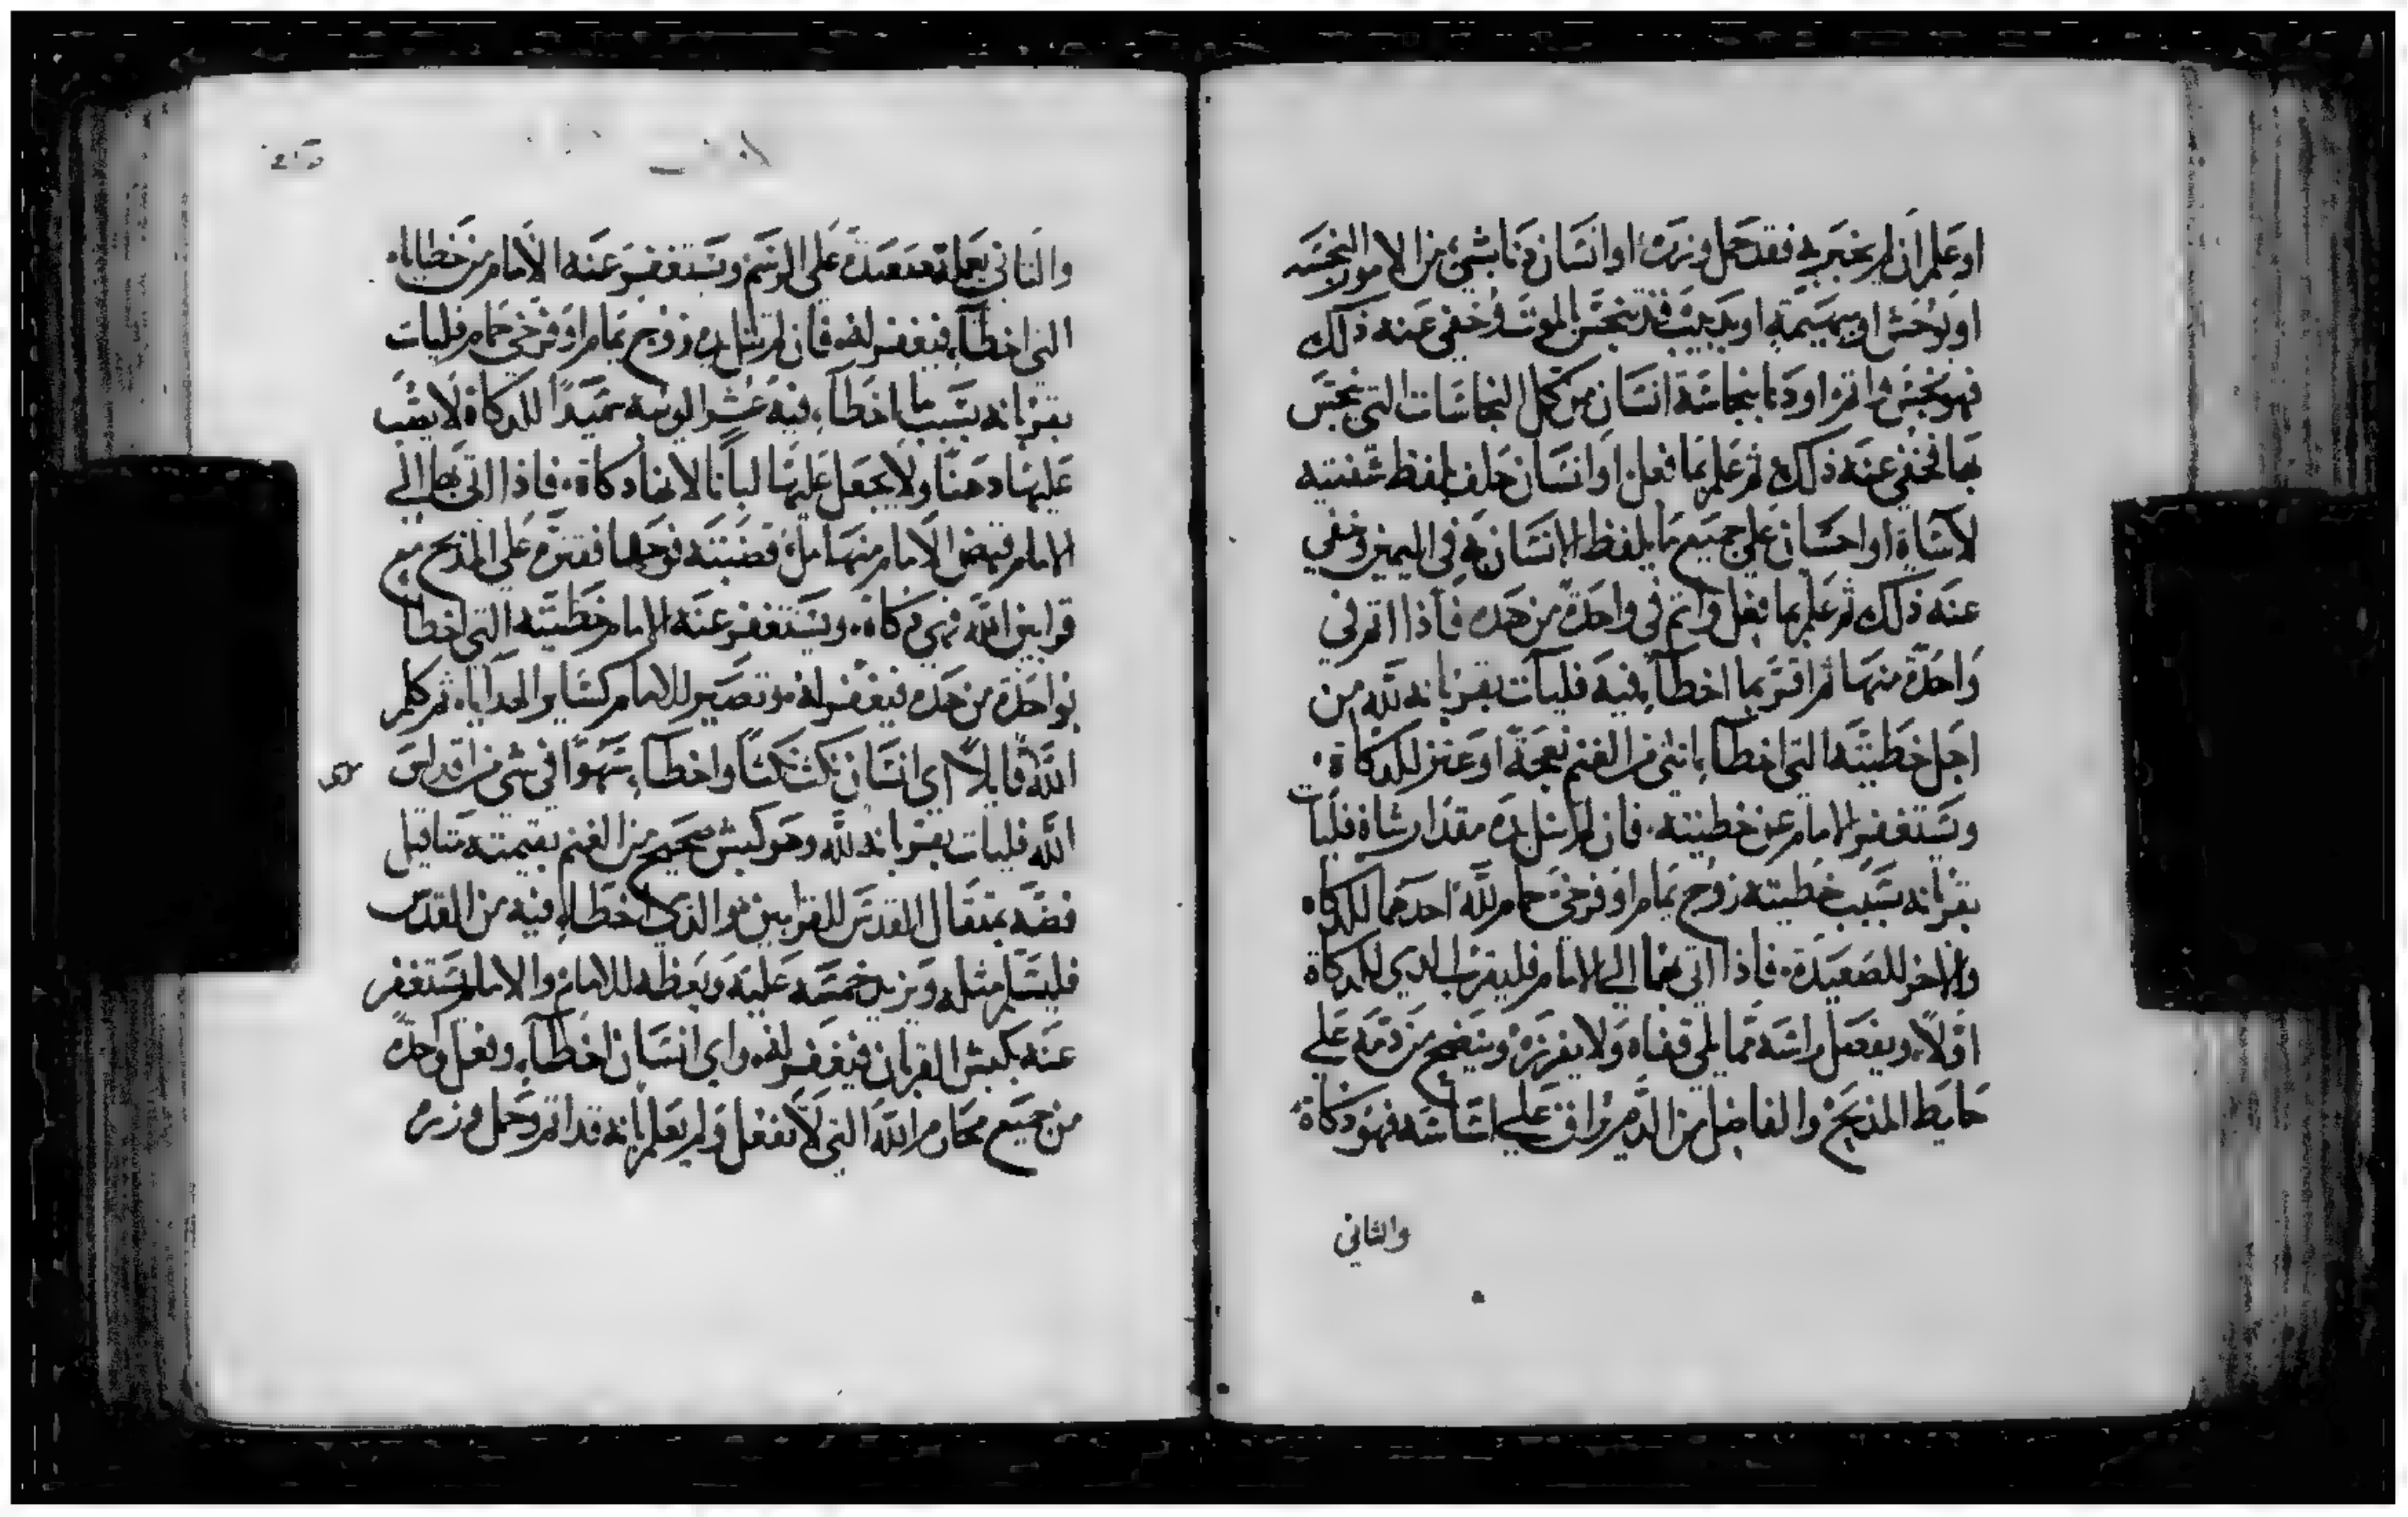 او علم ان لم يخبر به فقد حمل وزره او انسان دنا بشئ من الامور النجسه
او بوحش او ببهيمة او بدبيب قد تنجس بالموت وخفى عنه ذلك
فهو نجس واثم او دنا بنجاسة انسان من كل النجاسات التى نجس
بها فخفى عنه ذلك ثم علم بما فعل او انسان حلف بلفظ شفتيه
لاساة او احسان على جميع ما يلفظ الانسان به فى اليمين وخفي
عنه ذلك ثم علم بما فعل واثم في واحدة من هده فاذا اثم في
واحدة منها ثم اقر بما اخطا فيه فليات بقربانه لله من
اجل خطيته التى اخطا بانثى من الغنم نعجة او عنز للدكاة
ويستغفر الامام عن خطيته فان لم تنل يده مقدار شاة فليات
بقربانه بسبب خطيته زوج يمام او فرخى حمام لله احدهما للدكاه
والاخر للصعيدة فاذا اتى بهما الي الامام فليقرب الدي للدكاة
اولا ويفصل راسه مما يلي قفاه ولا يفرزه وينضح من دمه علي
حايط المذبح والفاضل من الدم يراق علي اساسه فهو دكاة
والثاني
والثاني يعمله صعيدة على الرسم ويستغفر عنه الامام من خطاياه
التى اخطا فيغفر له فان لم تنل يده زوج يمام او فرخي حمام فليات
بقربانه بسبب ما اخطا فيه عشر الويبه سميدا للدكاة لا يصب
عليها دهنا ولا يجعل عليها لبانا لانها دكاة فاذا اتى بها الي
الامام فيقبض الامام منها مل قبضته فوجها فتنزه على المذبح مع
قرابين الله فهي دكاة ويستغفر عنه الامام خطيته التى اخطا
بواحدة من هده فيغفر له وتصير للامام كساير الهدايا ثم كلم
الله قايلا اي انسان نكث نكثا واخطا سهوا في شي من اقداس
الله فليات بقربانه لله وهو كبش صحيح من الغنم بقيمته مثاقيل
فضه بمثقال القدس للقرابين والذي اخطا فيه من القدس
فليسلم مثله ويزيد خمسه عليه ويعطه للامام والامام يستغفر
عنه بكبش القربان فيغفر له واي انسان اخطا وفعل واحدة
من جميع محارم الله التى لا تفعل ولم يعلم بانه قد اثم وحمل وزره